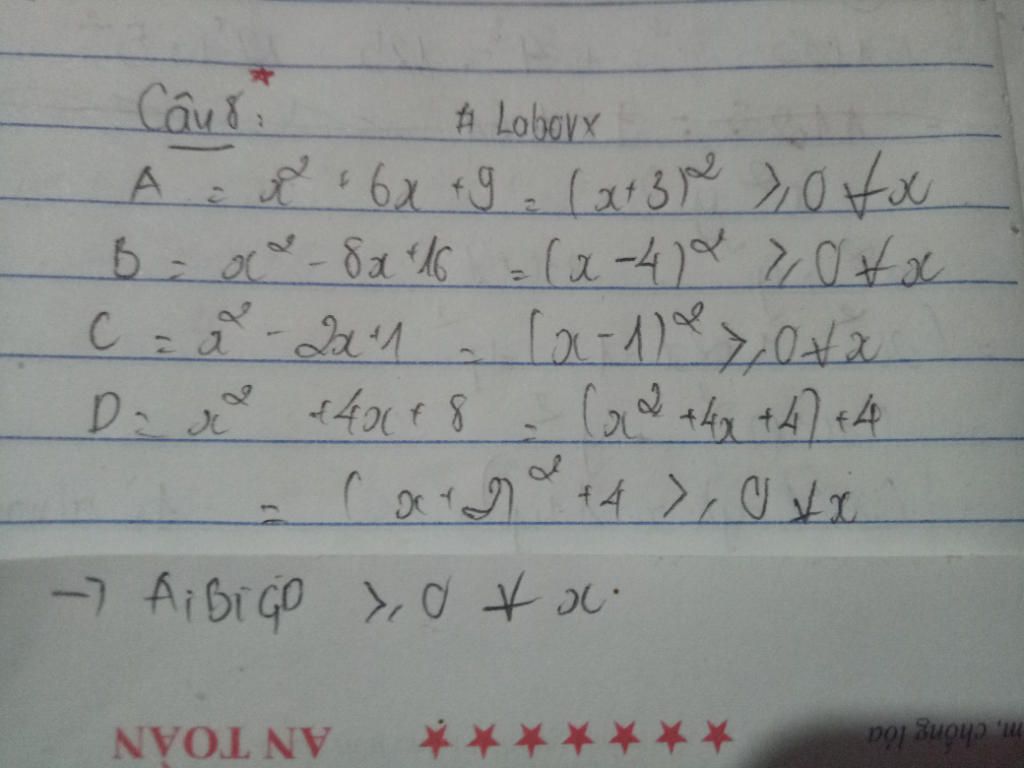 Câu 8: # Lobovx
A = x² + 6x + 9 = (x+3)² ≥ 0 ∀ x
B = x² - 8x + 16 = (x - 4)² ≥ 0 ∀ x
C = x² - 2x + 1 = (x - 1)² ≥ 0 ∀ x
D = x² + 4x + 8 = (x² + 4x + 4) + 4
= (x + 2)² + 4 ≥ 0 ∀ x
→ A; B; C; D ≥ 0 ∀ x.
AN TOÀN ★ ★ ★ ★ ★ ★ ★ m, chống lóa